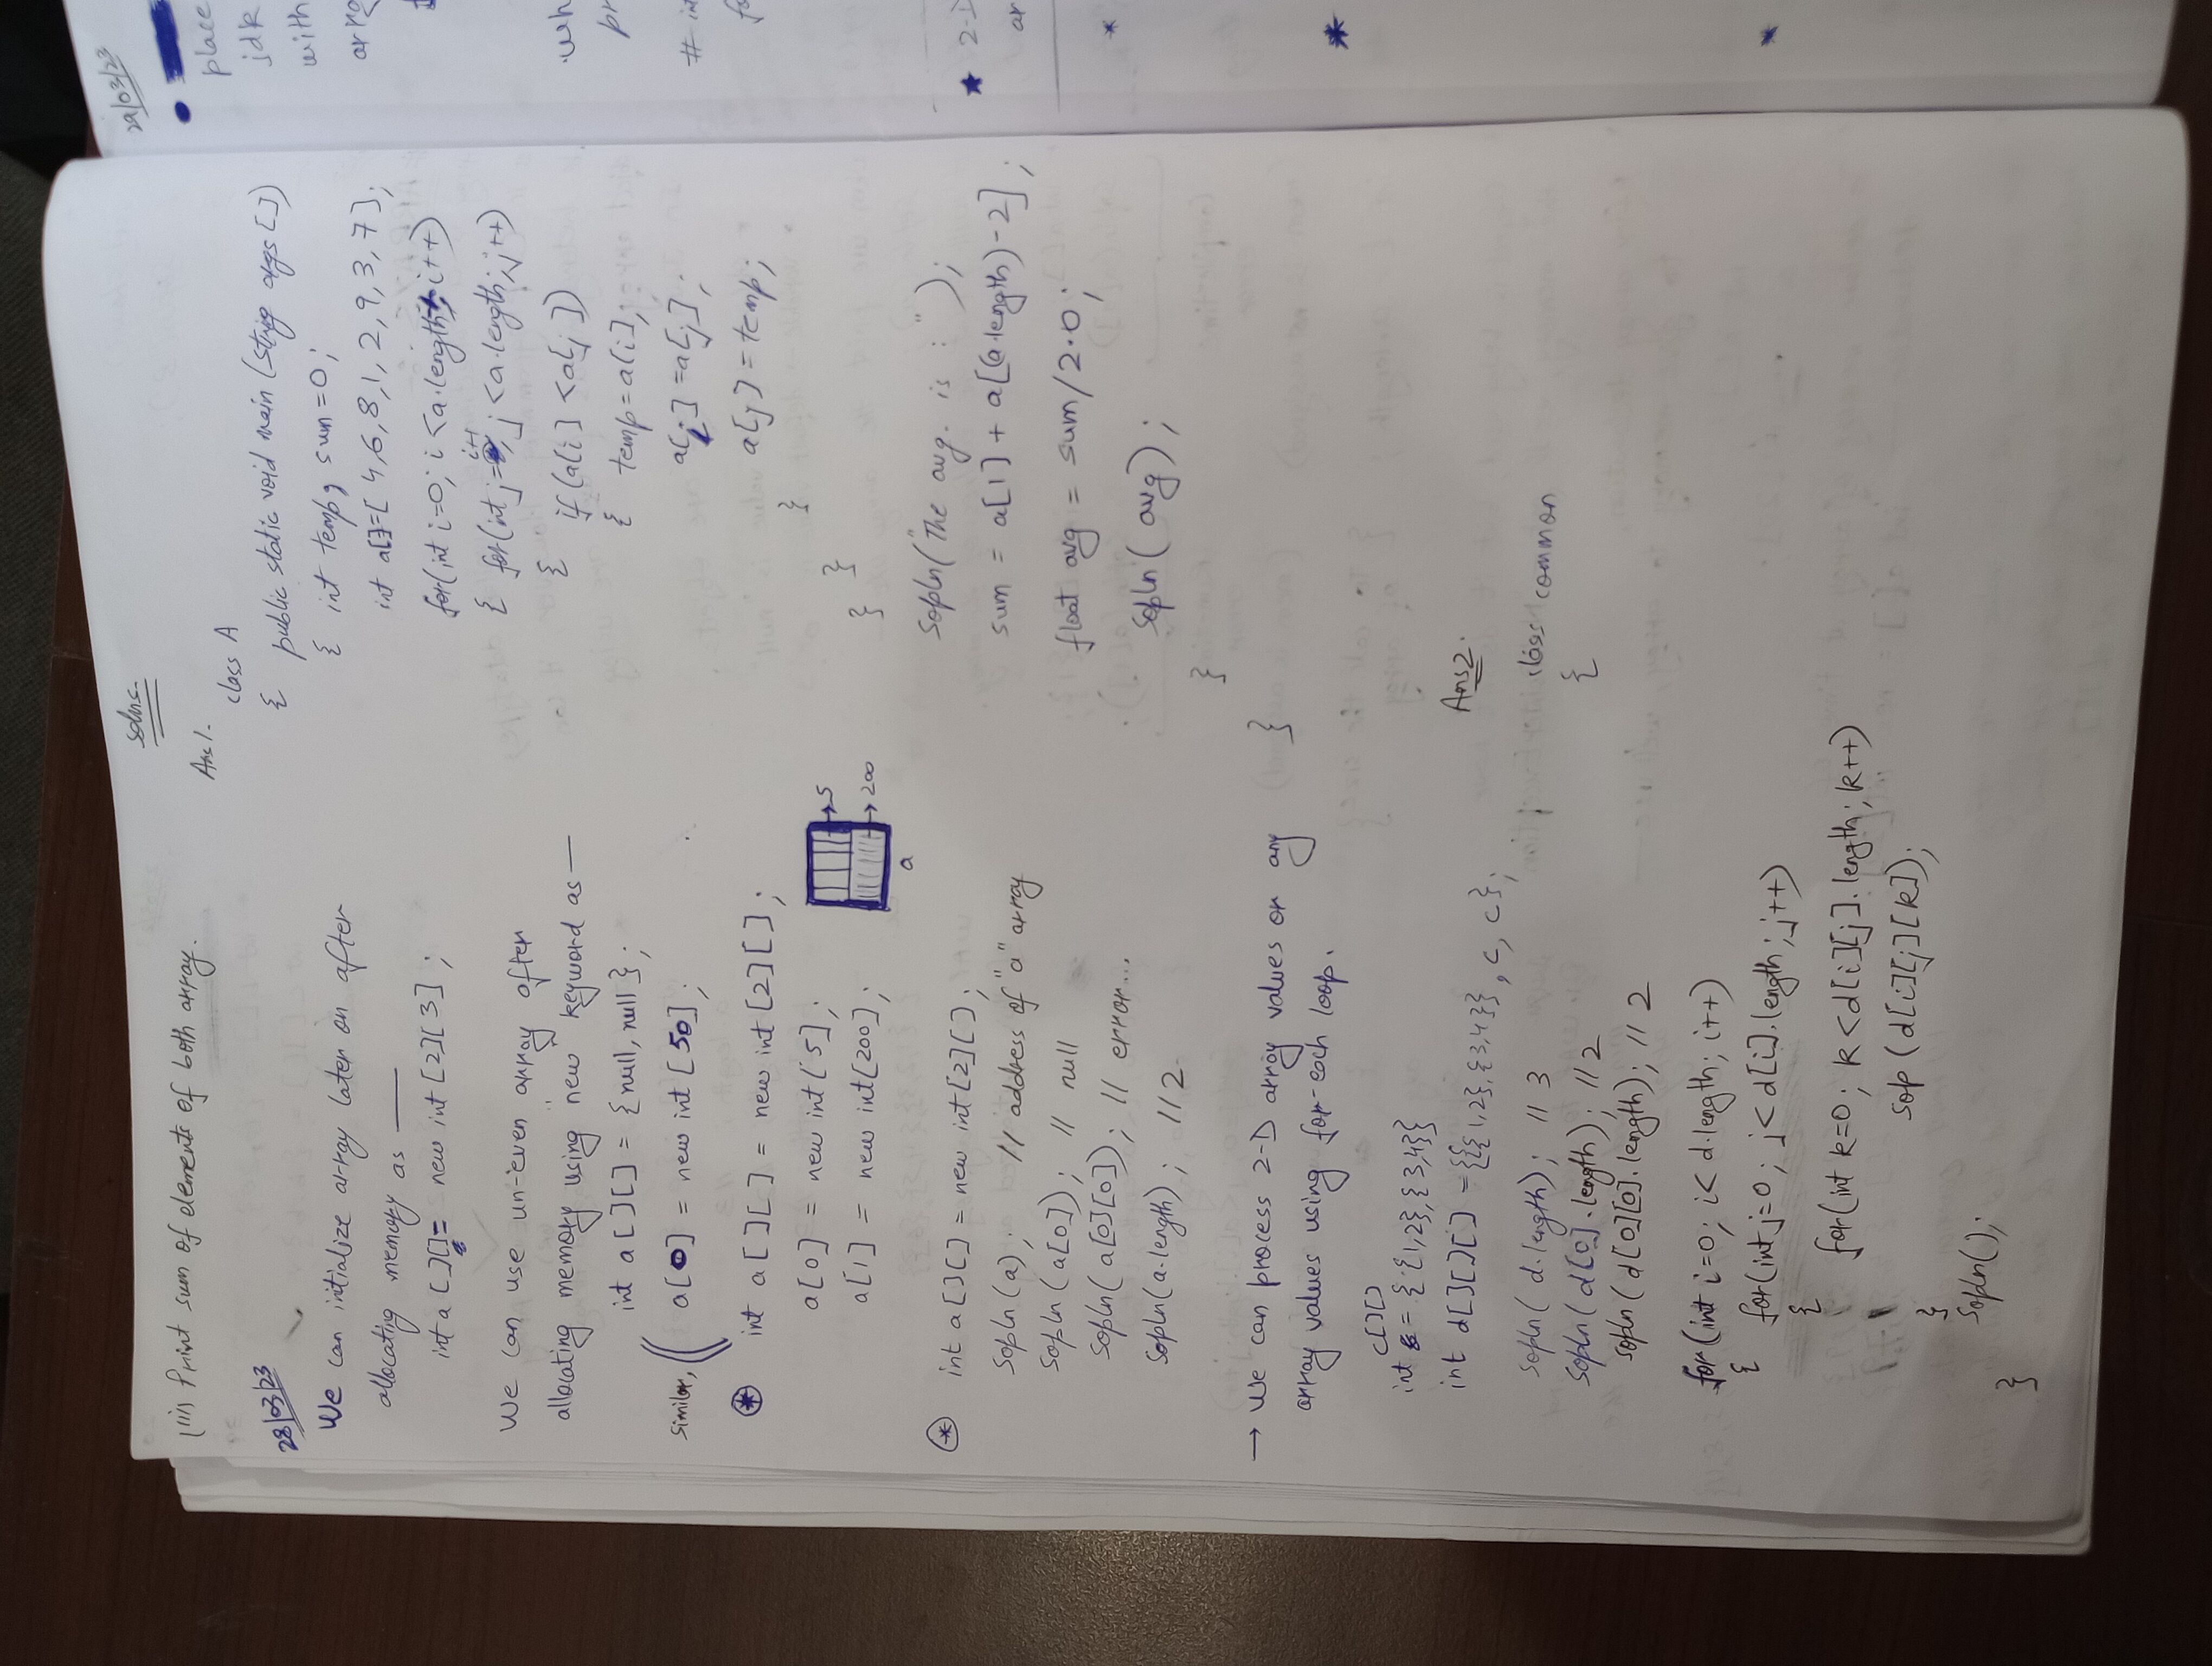 (iii) Print sum of elements of both array.
28/03/23
We can initialize array later on after
allocating memory as —
int a [][]= new int [2][3] ;
We can use un-even array after
allocating memory using "new" keyword as —
int a [][] = {null, null} ;
similar,
a[0] = new int [50] ;
* int a [][] = new int [2][] ;
a[0] = new int[5] ;
a[1] = new int[200] ;
→ 5
→ 200
a
* int a[][] = new int[2][] ;
sopln (a) ; // address of "a" array
sopln (a[0]) ; // null
sopln( a[0][0]) ; // error...
sopln(a.length) ; // 2
→ We can process 2-D array values or any
array values using for-each loop.
c[][]
int = { {1,2},{3,4}}
int d[][][] = {{{1,2},{3,4}}, c, c};
sopln( d.length) ; // 3
sopln( d[0].length) ; // 2
sopln( d[0][0].length) ; // 2
for(int i=0; i< d.length; i++)
{ for(int j=0 ; j< d[i].length ; j++)
{
for(int k=0; k<d[i][j].length ; k++)
sop (d[i][j][k]);
}
sopln();
}
solns.
Ans 1.
class A
{ public static void main (string args [])
{ int temp, sum=0 ;
int a[]=[ 4,6,8,1,2,9,3,7 ];
for(int i=0; i<a.length; i++)
i+1
{ for(int j= ; j<a.length; j++)
{ if (a[i] <a[j])
{ temp=a[i];
a[i] =a[j] ;
a[j] = temp;
}
}
}
sopln("The avg. is : ");
sum = a[1] + a[(a.length)-2] ;
float avg = sum/2.0 ;
sopln( avg) ;
}
}
Ans2.
class common
{
29/03/23
place
jdk
with
2-D
*
*
*